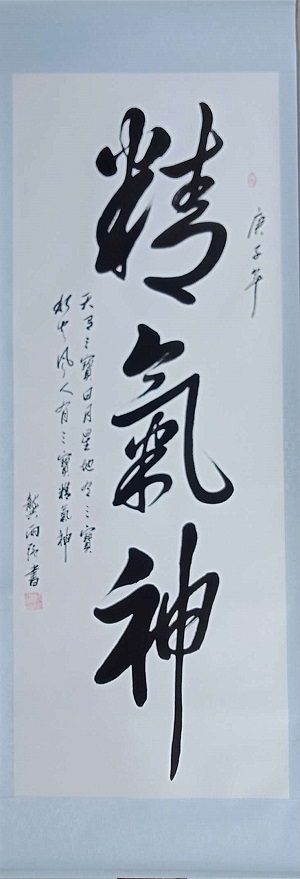 庚子年
精氣神
天有三寶日月星地有三寶
水火風人有三寶精氣神
龔 書